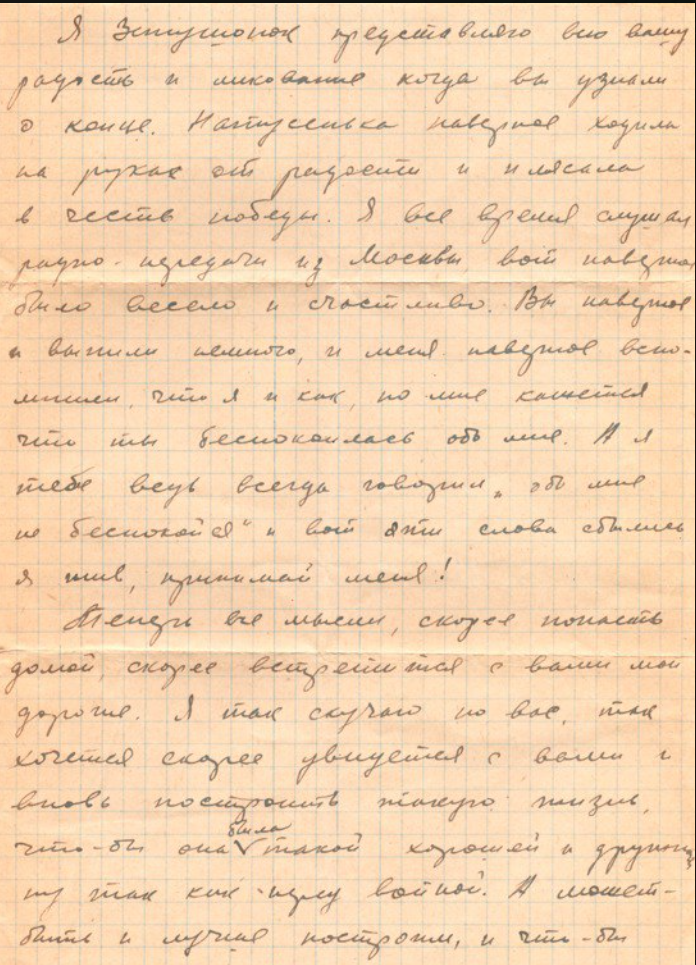 Я Зинушонок представляю всю вашу
радость и ликование когда вы узнали
о конце. Натусенька наверное ходила
на руках от радости и плясала
в честь победы. Я все время слушал
радио-передачи из Москвы, вот наверное
было весело и счастливо. Вы наверное
и выпили немного, и меня наверное вспо-
мнили, что я и как, но мне кажется
что ты беспокоилась обо мне. А я
тебе ведь всегда говорил „обо мне
не беспокойся" и вот эти слова сбылись
я жив, принимай меня!
Теперь все мысли, скорее попасть
домой, скорее встретится с вами мои
дорогие. Я так скучаю по вас, так
хочется скорее увидется с вами и
вновь построить такую жизнь,
что-бы она была такой хорошей и дружной
ну так как перед войной. А может-
быть и лучше построим, и что-бы